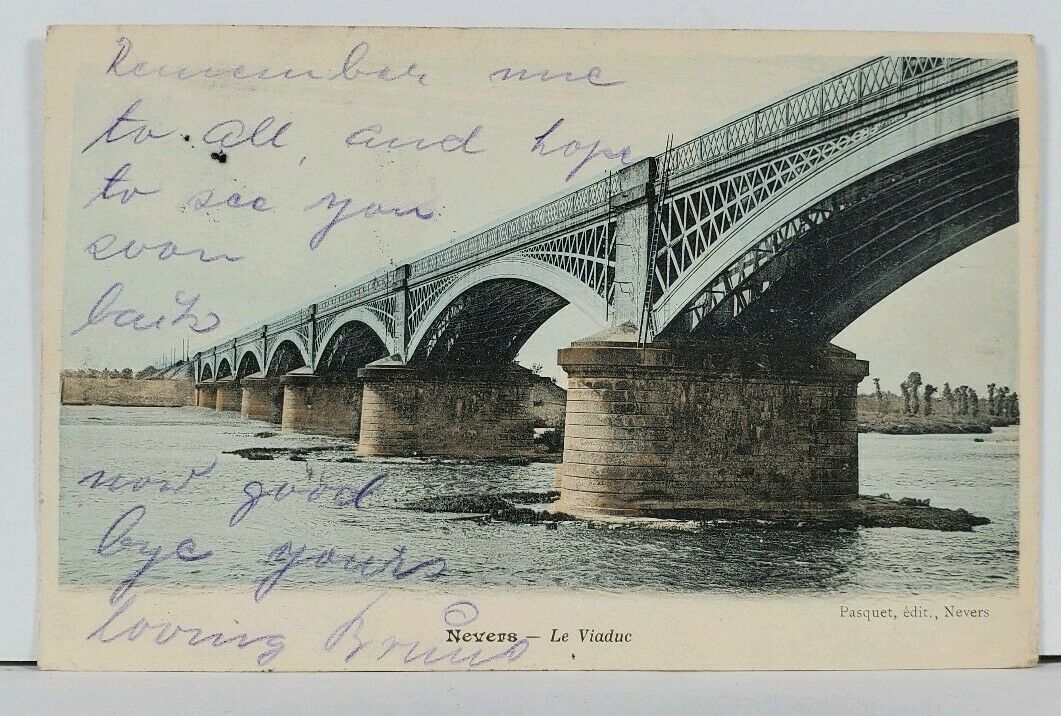 Remember me
to all, and hope
to see you
soon
back
now good
bye yours
loving Bruno
Nevers – Le Viaduc
Pasquet, édit., Nevers